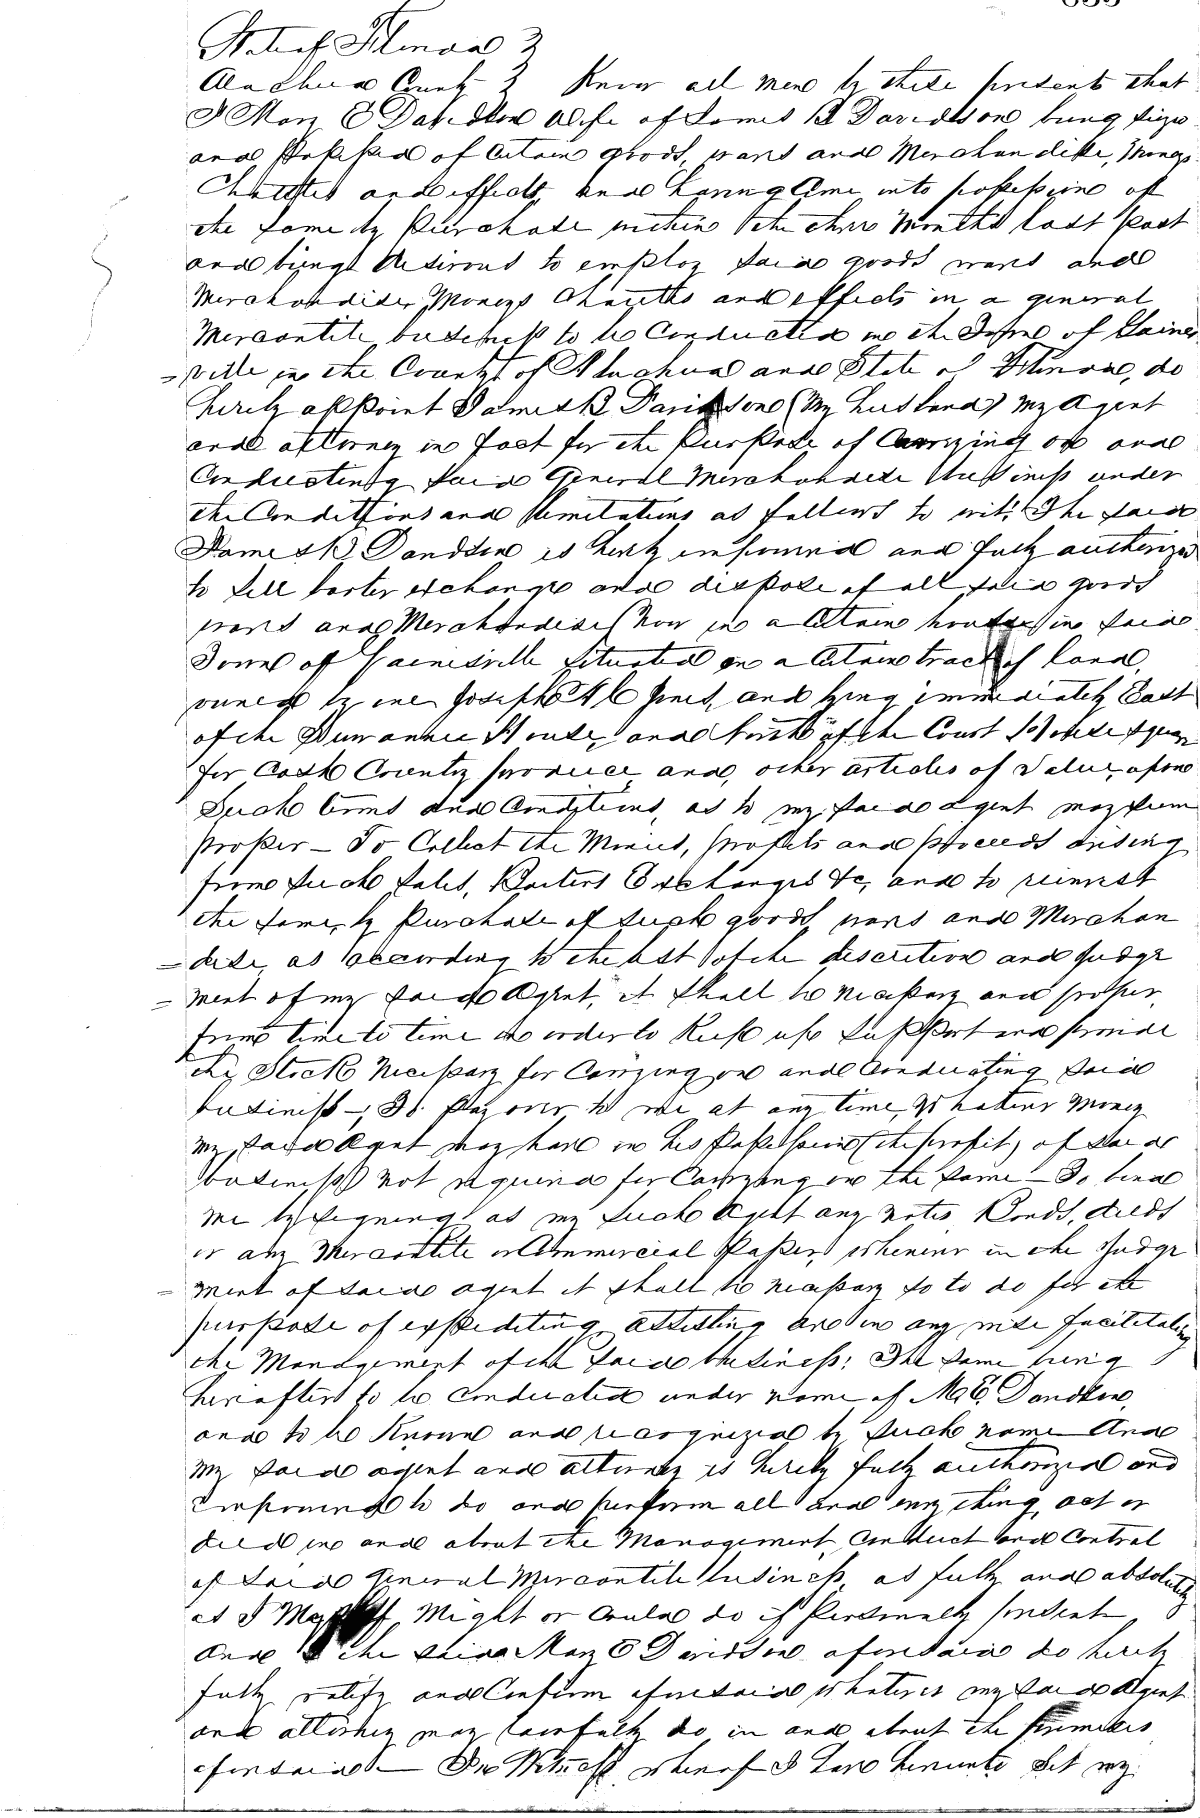 State of Florida }
Alachua County } Know all men by these presents that
I Mary E Davidson wife of James B Davidson being seized
and possessed of certain goods, wares and Merchandise, Moneys
Chattles and effects, and having Come into possession of
the same by Purchase within the three Months last past
and being desirous to employ said goods wares and
Merchandise, Moneys Chattles and effects in a general
Mercantile business to be Conducted in the Town of Gaines
=ville in the County of Alachua and State of Florida, do
hereby appoint James B Davidson (My husband) my Agent
and attorney in fact for the purpose of Carrying on and
Conducting said General Merchandise business under
the Conditions and limitations as follows to wit: The said
James B Davidson is hereby empowered and fully authorized
to sell barter exchange and dispose of all said goods
wares and Merchandise (Now in a Certain house) in said
Town of Gainesville situated on a Certain tract of land,
owned by one Joseph A C Jones, and lying immediately East
of the Suwannee House, and North of the Court House square
for Cash Country produce and, other articles of value, upon
Such terms and Conditions, as to my said agent may seem
proper — To Collect the Monies, profits and proceeds arising
from such sales, Barters Exchanges &c, and to reinvest
the same, by Purchase of such goods wares and Merchan
=dise, as according to the best of the discretion and judge
=ment of my said Agent, it shall be necessary and proper,
from time to time in order to Keep up support and provide
the Stock Necessary for Carrying on and Conducting said
business —, To Pay over to me at any time, Whatever Money
my said Agent may have in his Possession (the profits of said
business) not required for Carrying on the same — To bind
me by signing as my such Agent any notes Bonds, deeds
or any Mercantile or Commercial Paper, whenever in the Judge
=ment of said agent it shall be necessary so to do for the
purpose of expediting assisting and in any wise facilitating
the Management of the said business; The same being
hereafter to be conducted under name of M. E. Davidson,
and to be Known and recognized by such name And
my said agent and attorney is hereby fully authorized and
empowered to do and perform all and every thing, act or
deed in and about the Management, Conduct and Control
of said General Mercantile business, as fully and absolutely
as I Might or Could do if Personally present.
And I the said Mary E Davidson aforesaid do hereby
fully ratify and Confirm aforesaid Whatever my said Agent
and attorney may lawfully do in and about the premises
aforesaid — In Witness whereof I have hereunto set my